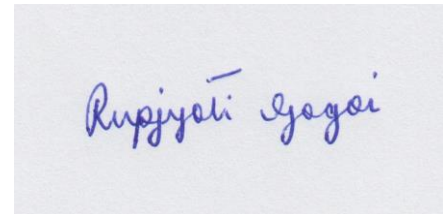 Rupjyoti Gogoi